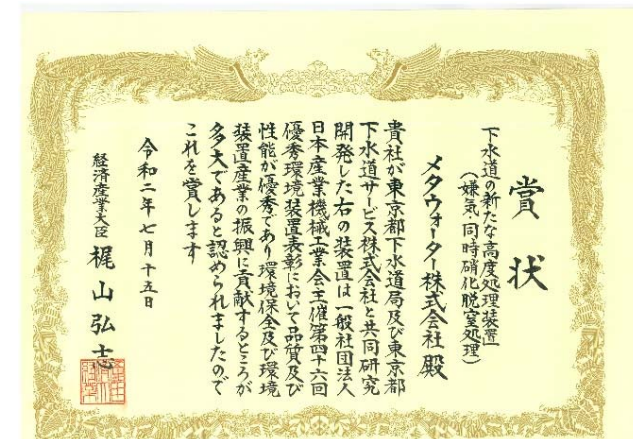 賞状
下水道の新たな高度処理装置
(嫌気・同時硝化脱窒処理)
メタウォーター株式会社 殿
貴社が東京都下水道局及び東京都
下水道サービス株式会社と共同研究
開発した右の装置は一般社団法人
日本産業機械工業会主催第四十六回
優秀環境装置表彰において品質及び
性能が優秀であり環境保全及び環境
装置産業の振興に貢献するところが
多大であると認められましたので
これを賞します
令和二年七月十五日
経済産業大臣 梶山弘志